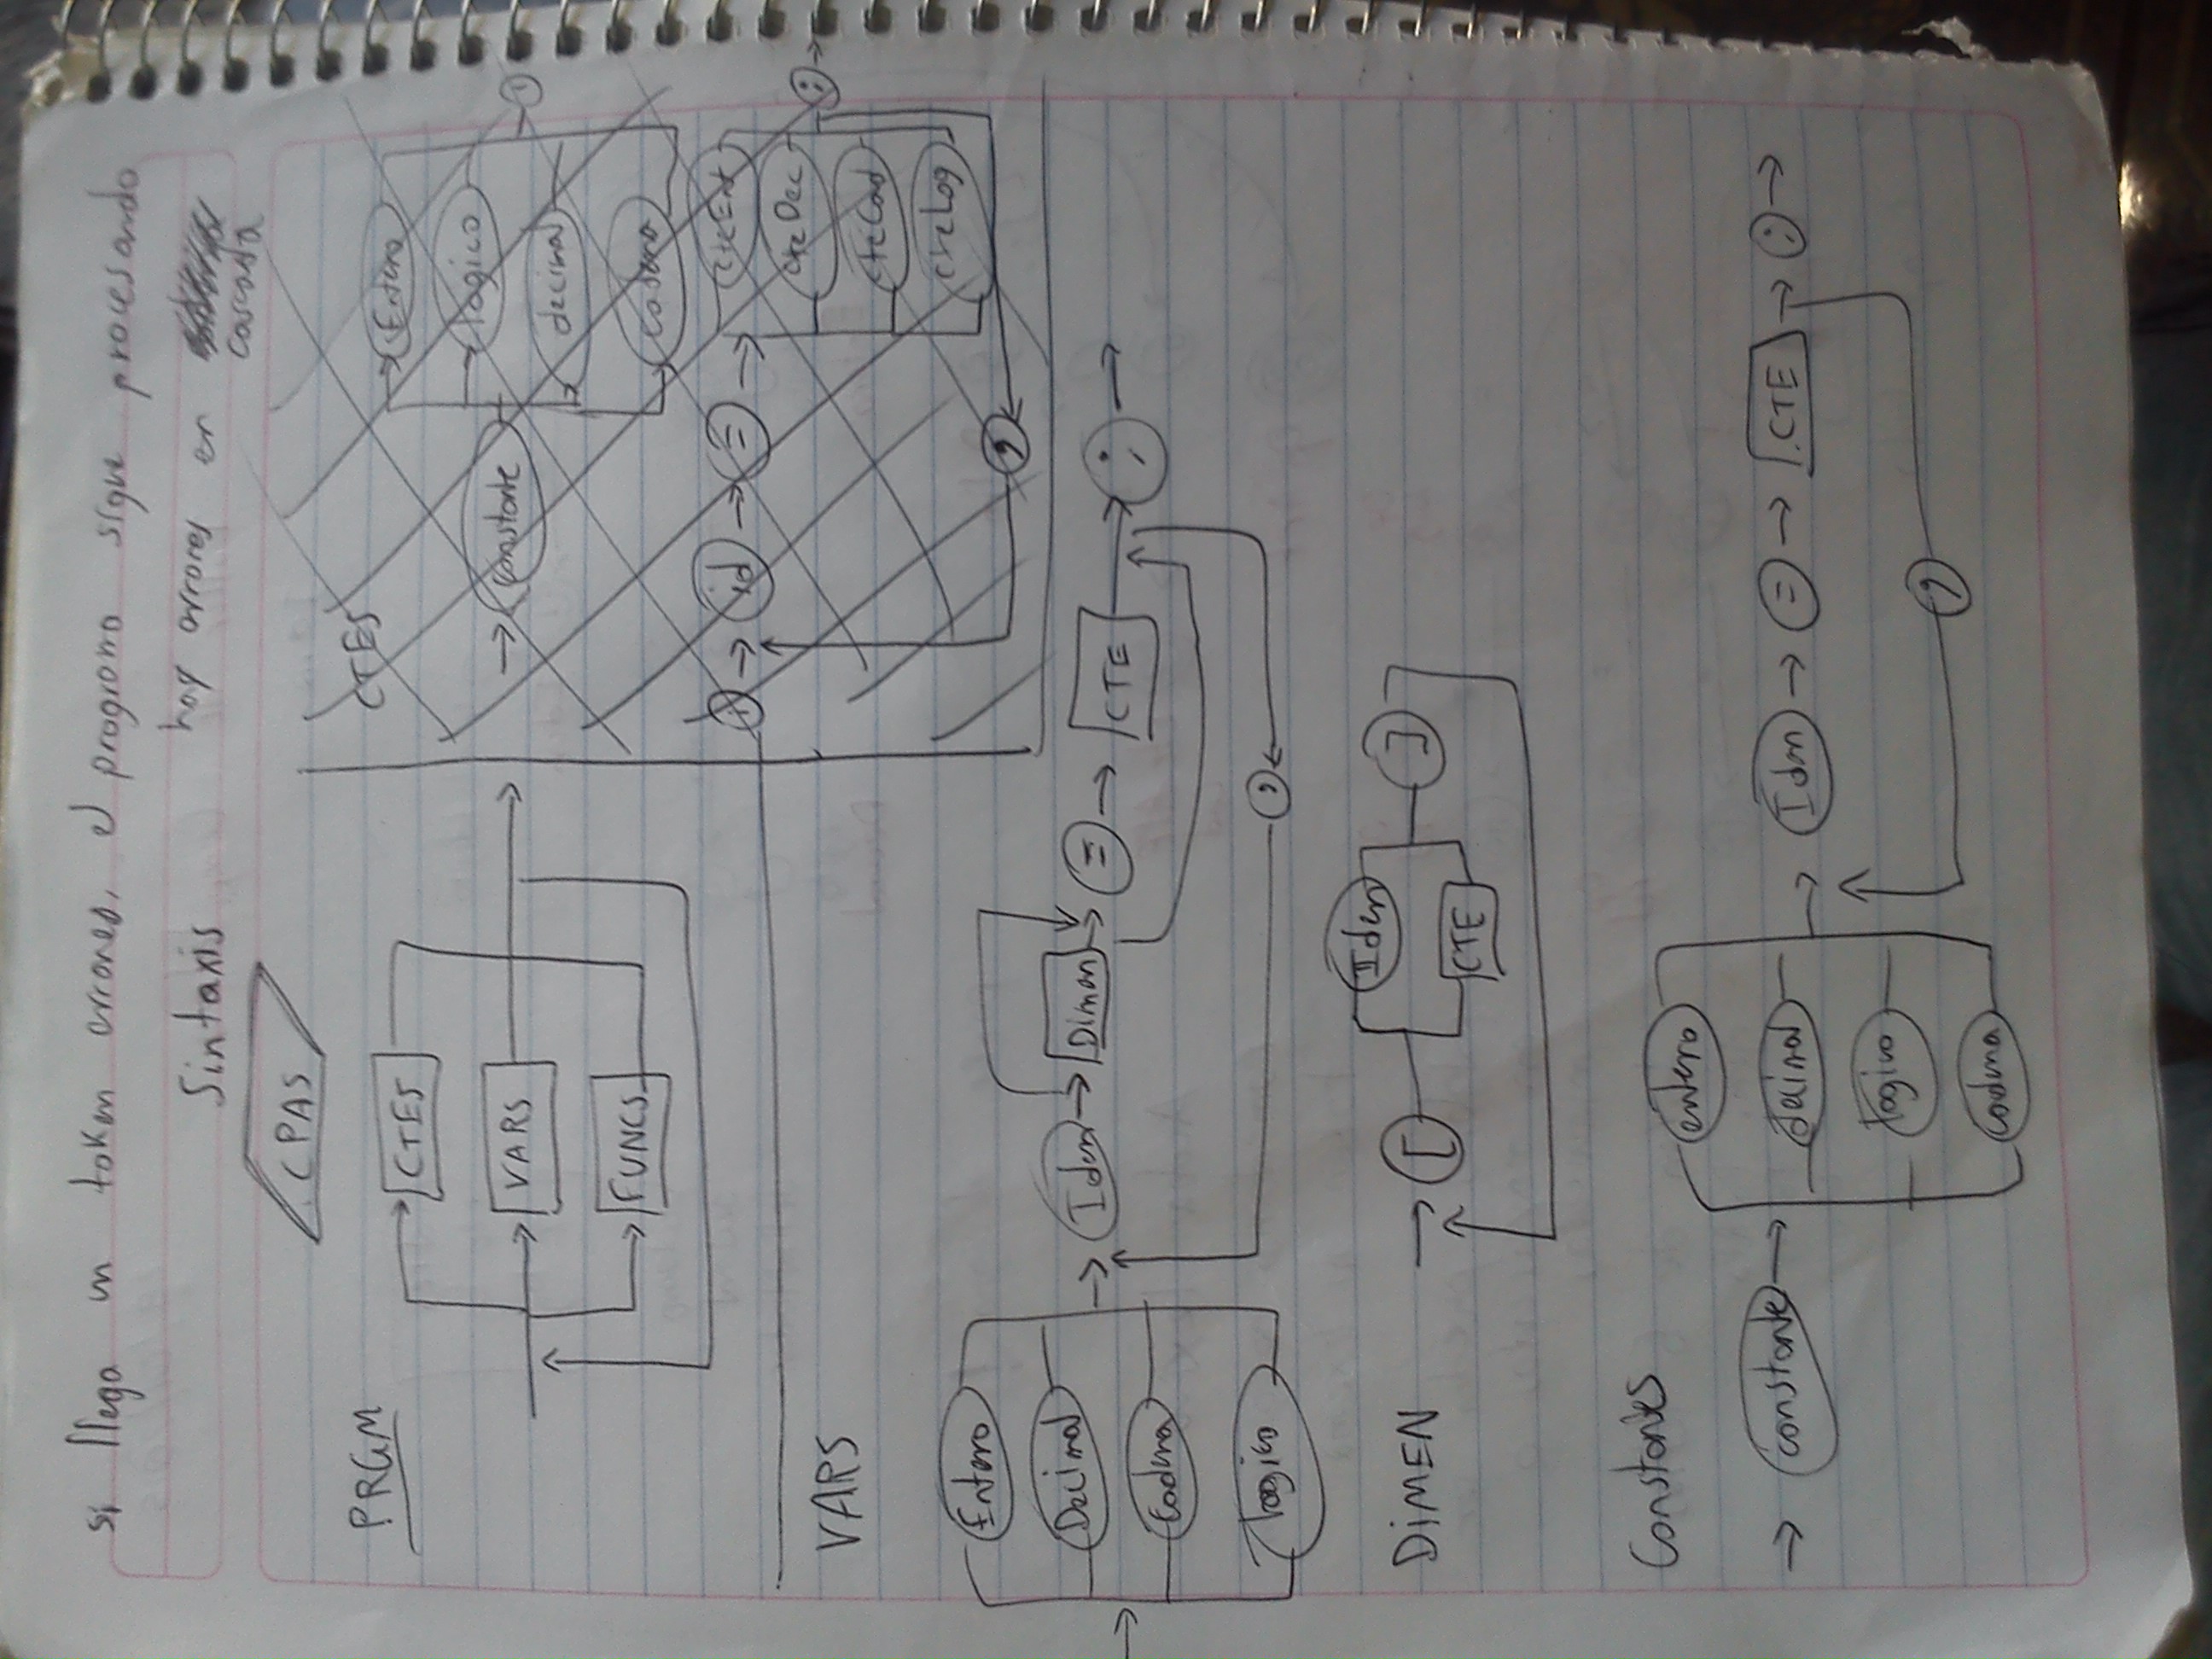 si llega un token erroneo, el programa sigue procesando
hay errores en
cascada
Sintaxis
CPAS
PRGM
CTES
VARS
FUNCS
CTES
constante
Entero
logico
decimal
cadena
1
1 id = cteEnt
cteDec
cteCad
cteLog
;
,
VARS
Entero
Decimal
Cadena
logico
Iden Dimen = CTE ;
,
DIMEN
[ Iden ]
CTE
Constantes
constante
entero
decimal
logico
cadena
Iden = CTE ;
,